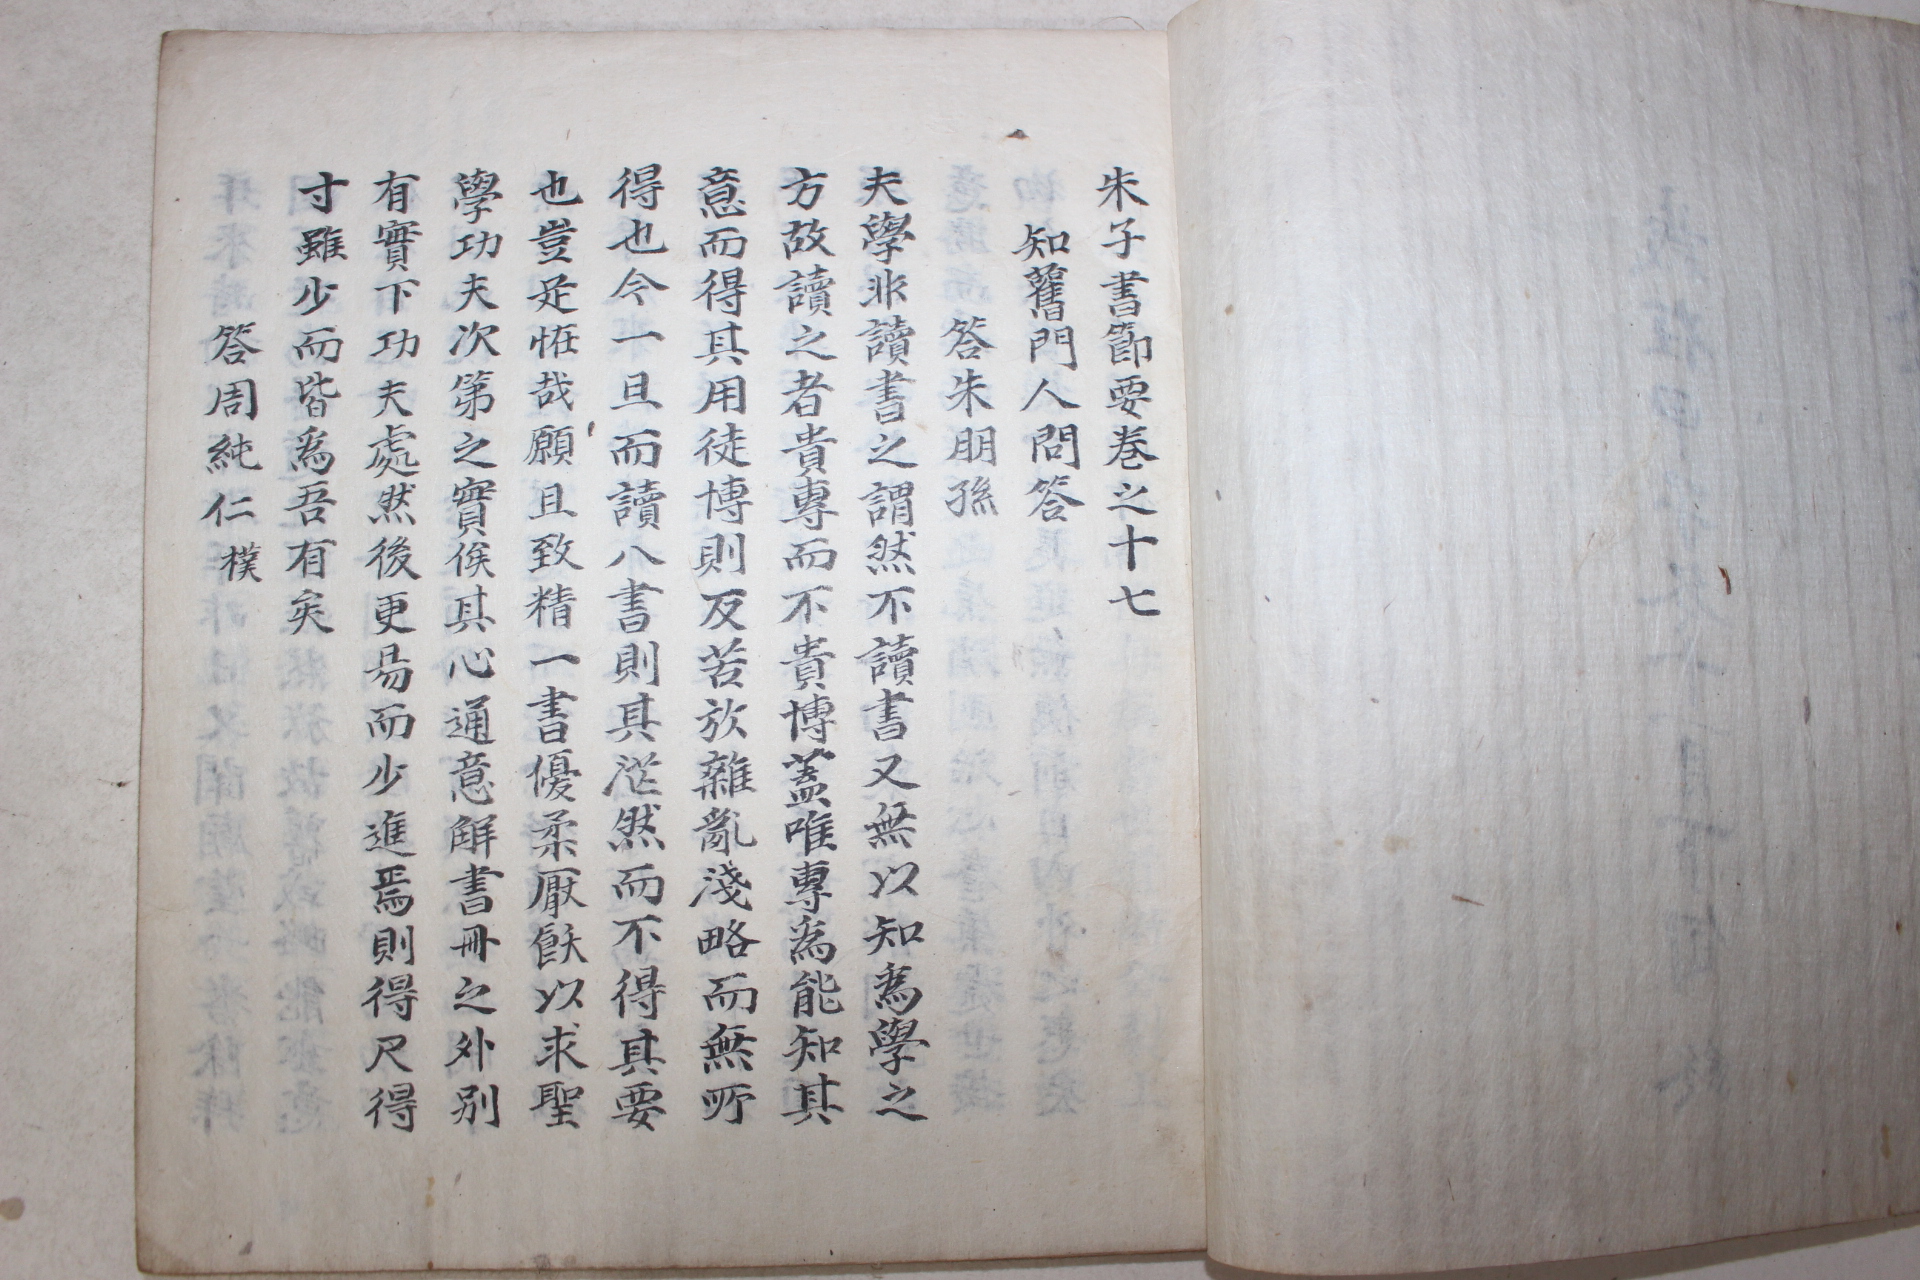 朱子書節要卷之十七
知舊門人問答
答朱朋孫
夫學非讀書之謂然不讀書又無以知爲學之
方故讀之者貴專而不貴博蓋唯專爲能知其
意而得其用徒博則反苦於雜亂淺略而無所
得也今一旦而讀八書則其茫然而不得其要
也豈足恠哉願且致精一書優柔厭飫以求聖
學功夫次第之實俟其心通意解書冊之外別
有實下功夫處然後更易而少進焉則得尺得
寸雖少而皆爲吾有矣
答周純仁樸